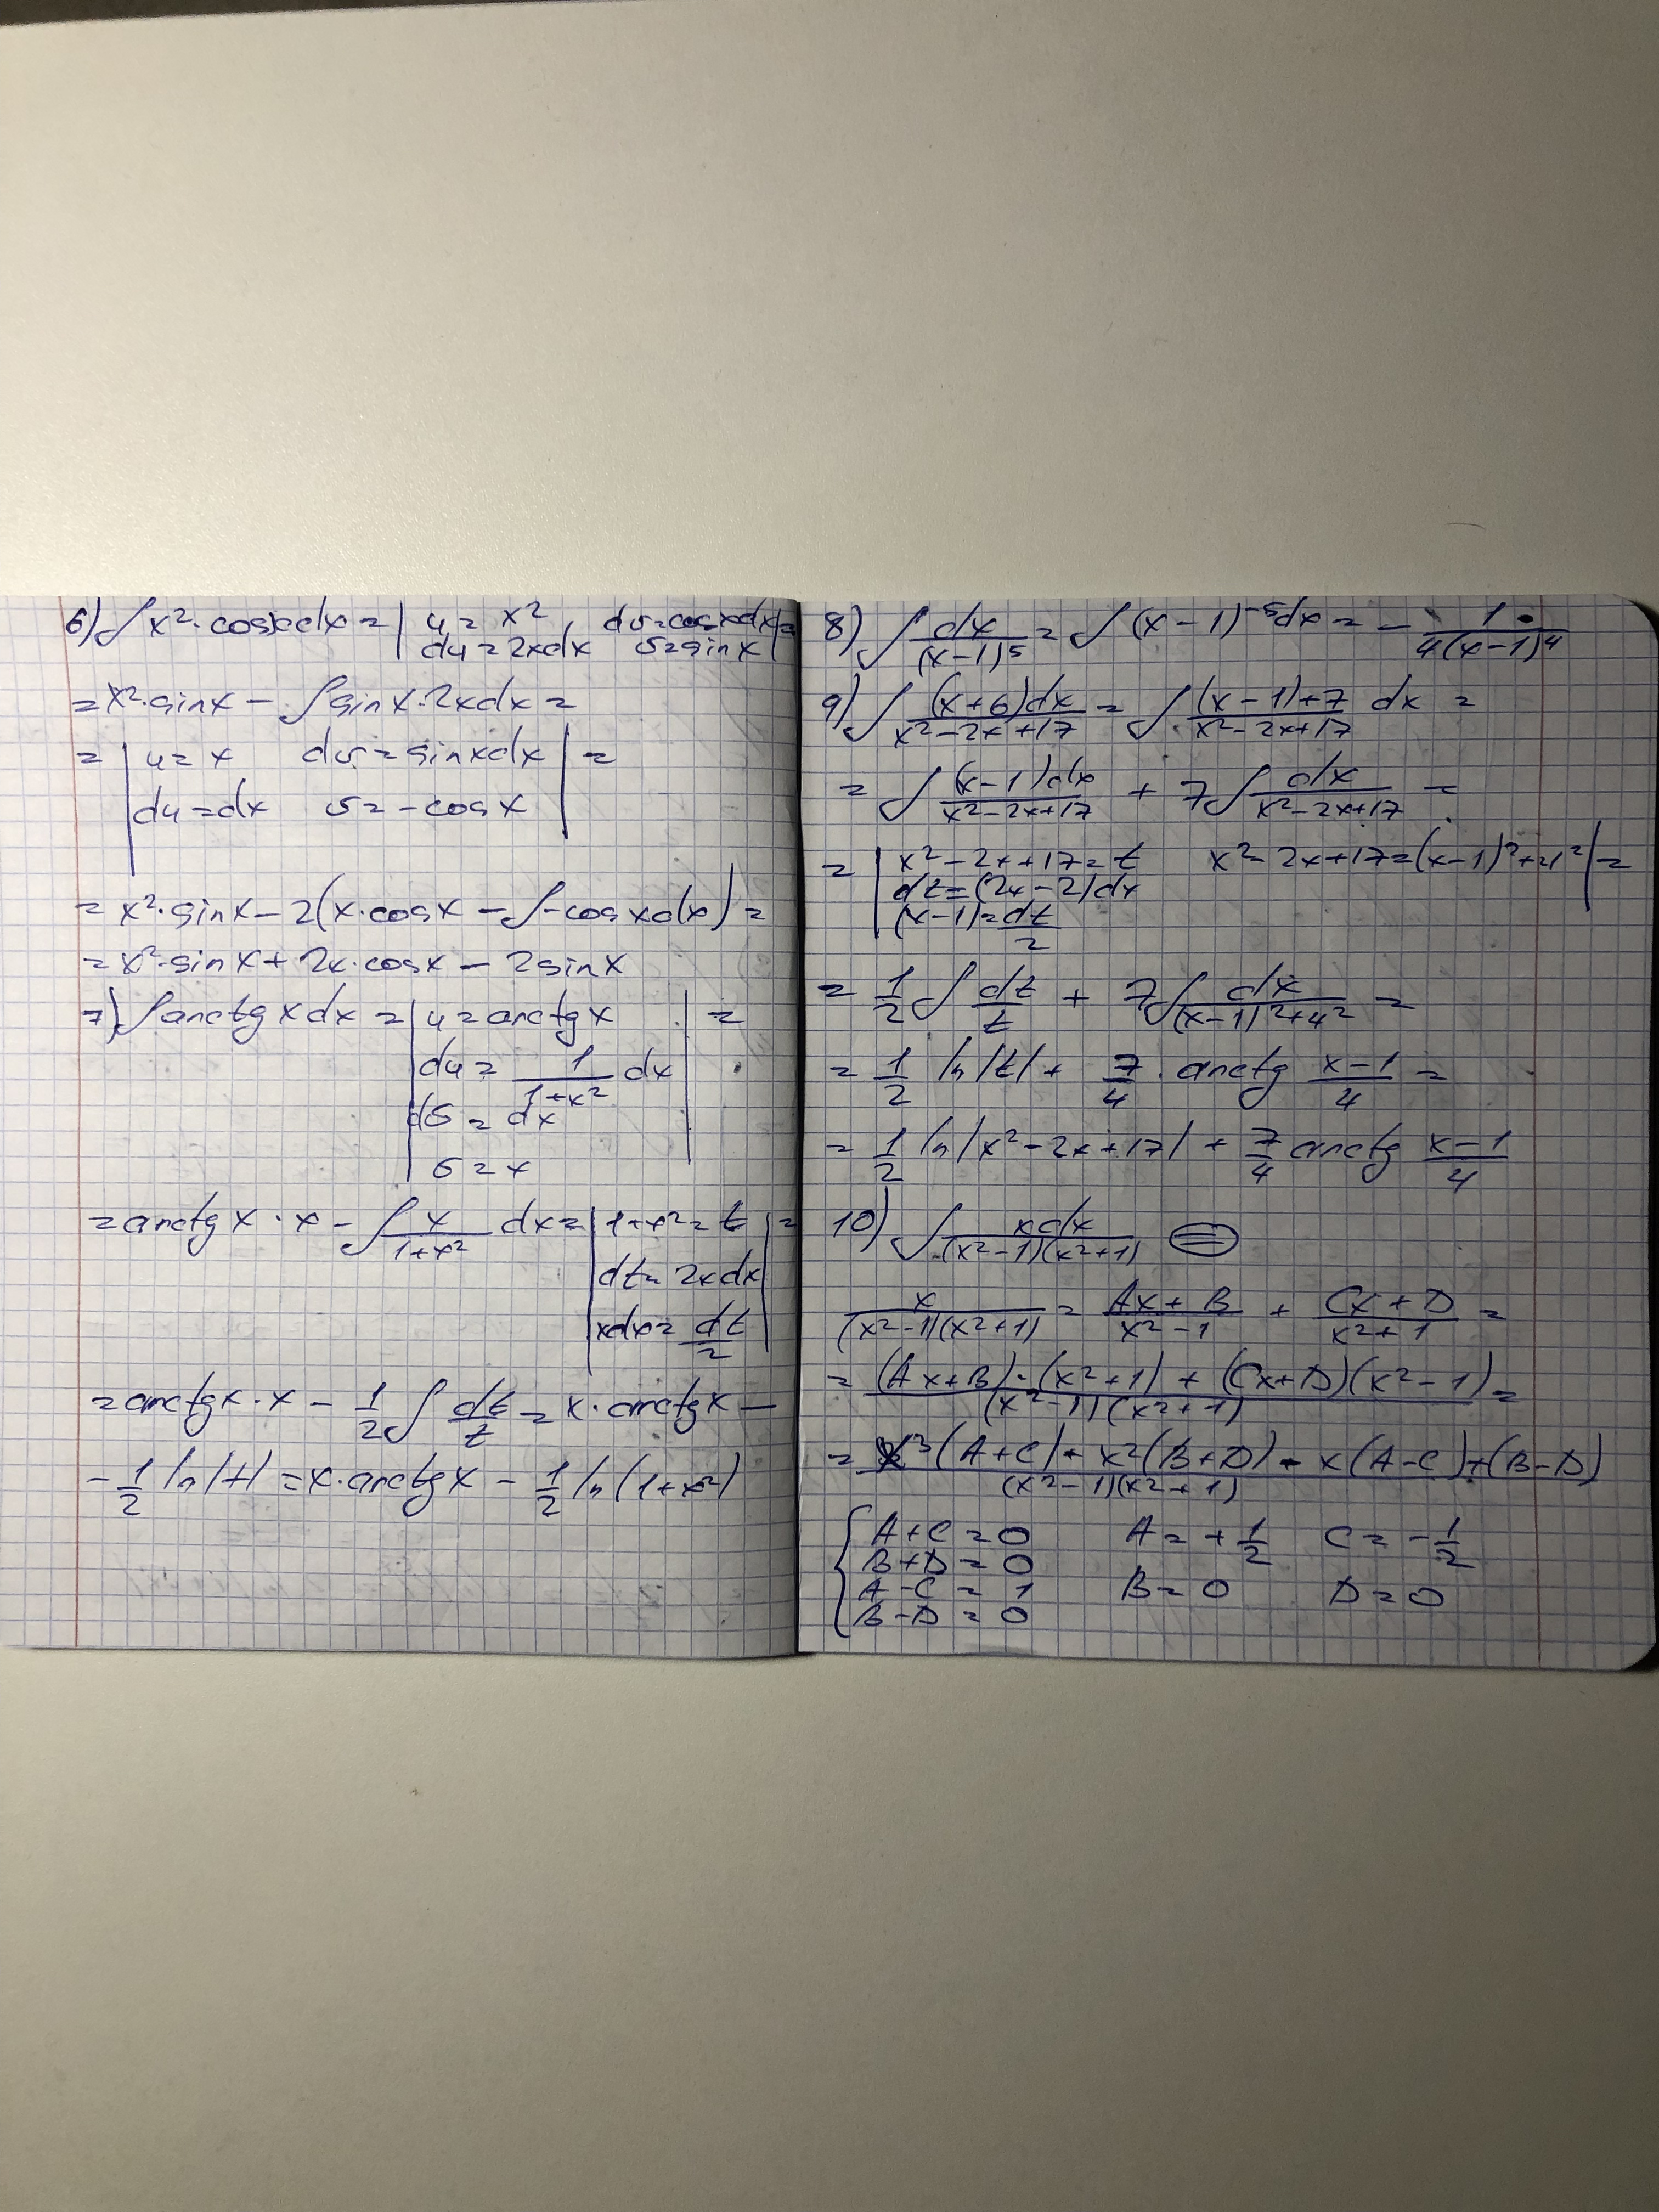 6) ∫ x²·cosxdx = | u = x², dv=cosxdx | =
| du = 2xdx v=sinx |
= x²·sinx − ∫ sinx·2xdx =
= | u = x dv = sinxdx | =
| du = dx v = −cosx |
= x²·sinx − 2(x·cosx − ∫−cosxdx) =
= x²·sinx + 2x·cosx − 2sinx
7) ∫ arctgxdx = | u = arctgx | =
| du = 1/(1+x²) dx |
| dv = dx |
| v = x |
= arctgx·x − ∫ x/(1+x²) dx = | 1+x² = t | =
| dt = 2xdx |
| xdx = dt/2 |
= arctgx·x − 1/2 ∫ dt/t = x·arctgx −
− 1/2 ln|t| = x·arctgx − 1/2 ln(1+x²)
8) ∫ dx/(x−1)⁵ = ∫ (x−1)⁻⁵dx = − 1/(4(x−1)⁴)
9) ∫ (x+6)dx/(x²−2x+17) = ∫ ((x−1)+7)/(x²−2x+17) dx =
= ∫ (x−1)dx/(x²−2x+17) + 7∫ dx/(x²−2x+17) =
= | x²−2x+17 = t x²−2x+17=(x−1)²+4² | =
| dt = (2x−2)dx
| (x−1) = dt/2
= 1/2 ∫ dt/t + 7∫ dx/((x−1)²+4²) =
= 1/2 ln|t| + 7/4 · arctg (x−1)/4 =
= 1/2 ln|x²−2x+17| + 7/4 arctg (x−1)/4
10) ∫ xdx/((x²−1)(x²+1)) (=)
x/((x²−1)(x²+1)) = (Ax+B)/(x²−1) + (Cx+D)/(x²+1) =
= ((Ax+B)·(x²+1) + (Cx+D)(x²−1))/((x²−1)(x²+1)) =
= (x³(A+C) + x²(B+D) + x(A−C) + (B−D))/((x²−1)(x²+1))
{ A+C = 0 A = +1/2 C = −1/2
B+D = 0
A−C = 1 B = 0 D = 0
B−D = 0